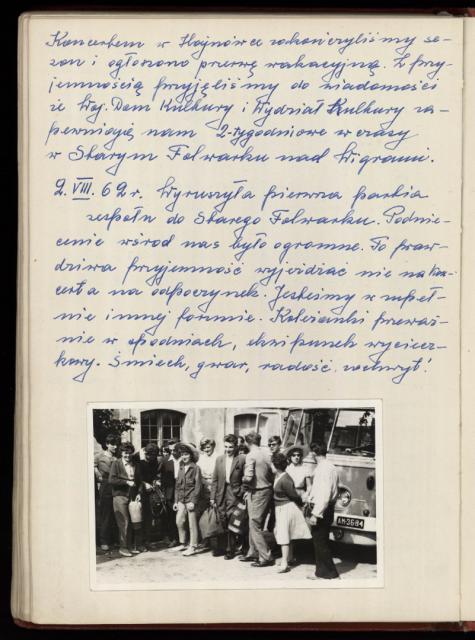 Koncertem w Hajnówce zakończyliśmy se-
zon i ogłoszono przerwę wakacyjną. Z przy-
jemnością przyjęliśmy do wiadomości
że Woj. Dom Kultury i Wydział Kultury za-
pewniają nam 2-tygodniowe wczasy
w Starym Folwarku nad Wigrami.
2. VIII. 62 r. Wyruszyła pierwsza partia
zespołu do Starego Folwarku. Podnie-
cenie wśród nas było ogromne. To praw-
dziwa przyjemność wyjeżdżać nie na kon-
certa na odpoczynek. Jesteśmy w zupeł-
nie innej formie. Koleżanki przeważ-
nie w spodniach, ekwipunek wyciecz-
kowy. Śmiech, gwar, radość, zachwyt!
AM-3684